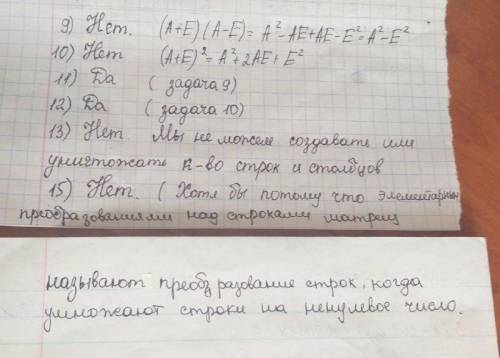 9) Нет. (А+Е)(А-Е)= А²-АЕ+АЕ-Е²=А²-Е²
10) Нет (А+Е)²=А²+2АЕ+Е²
11) Да ( задача 9)
12) Да ( задача 10)
13) Нет. Мы не можем создавать или
уничтожать к-во строк и столбцов
15) Нет. ( Хотя бы потому что элементарными
преобразованиями над строками матрец
называют преобразование строк, когда
умножают строки на ненулевое число.